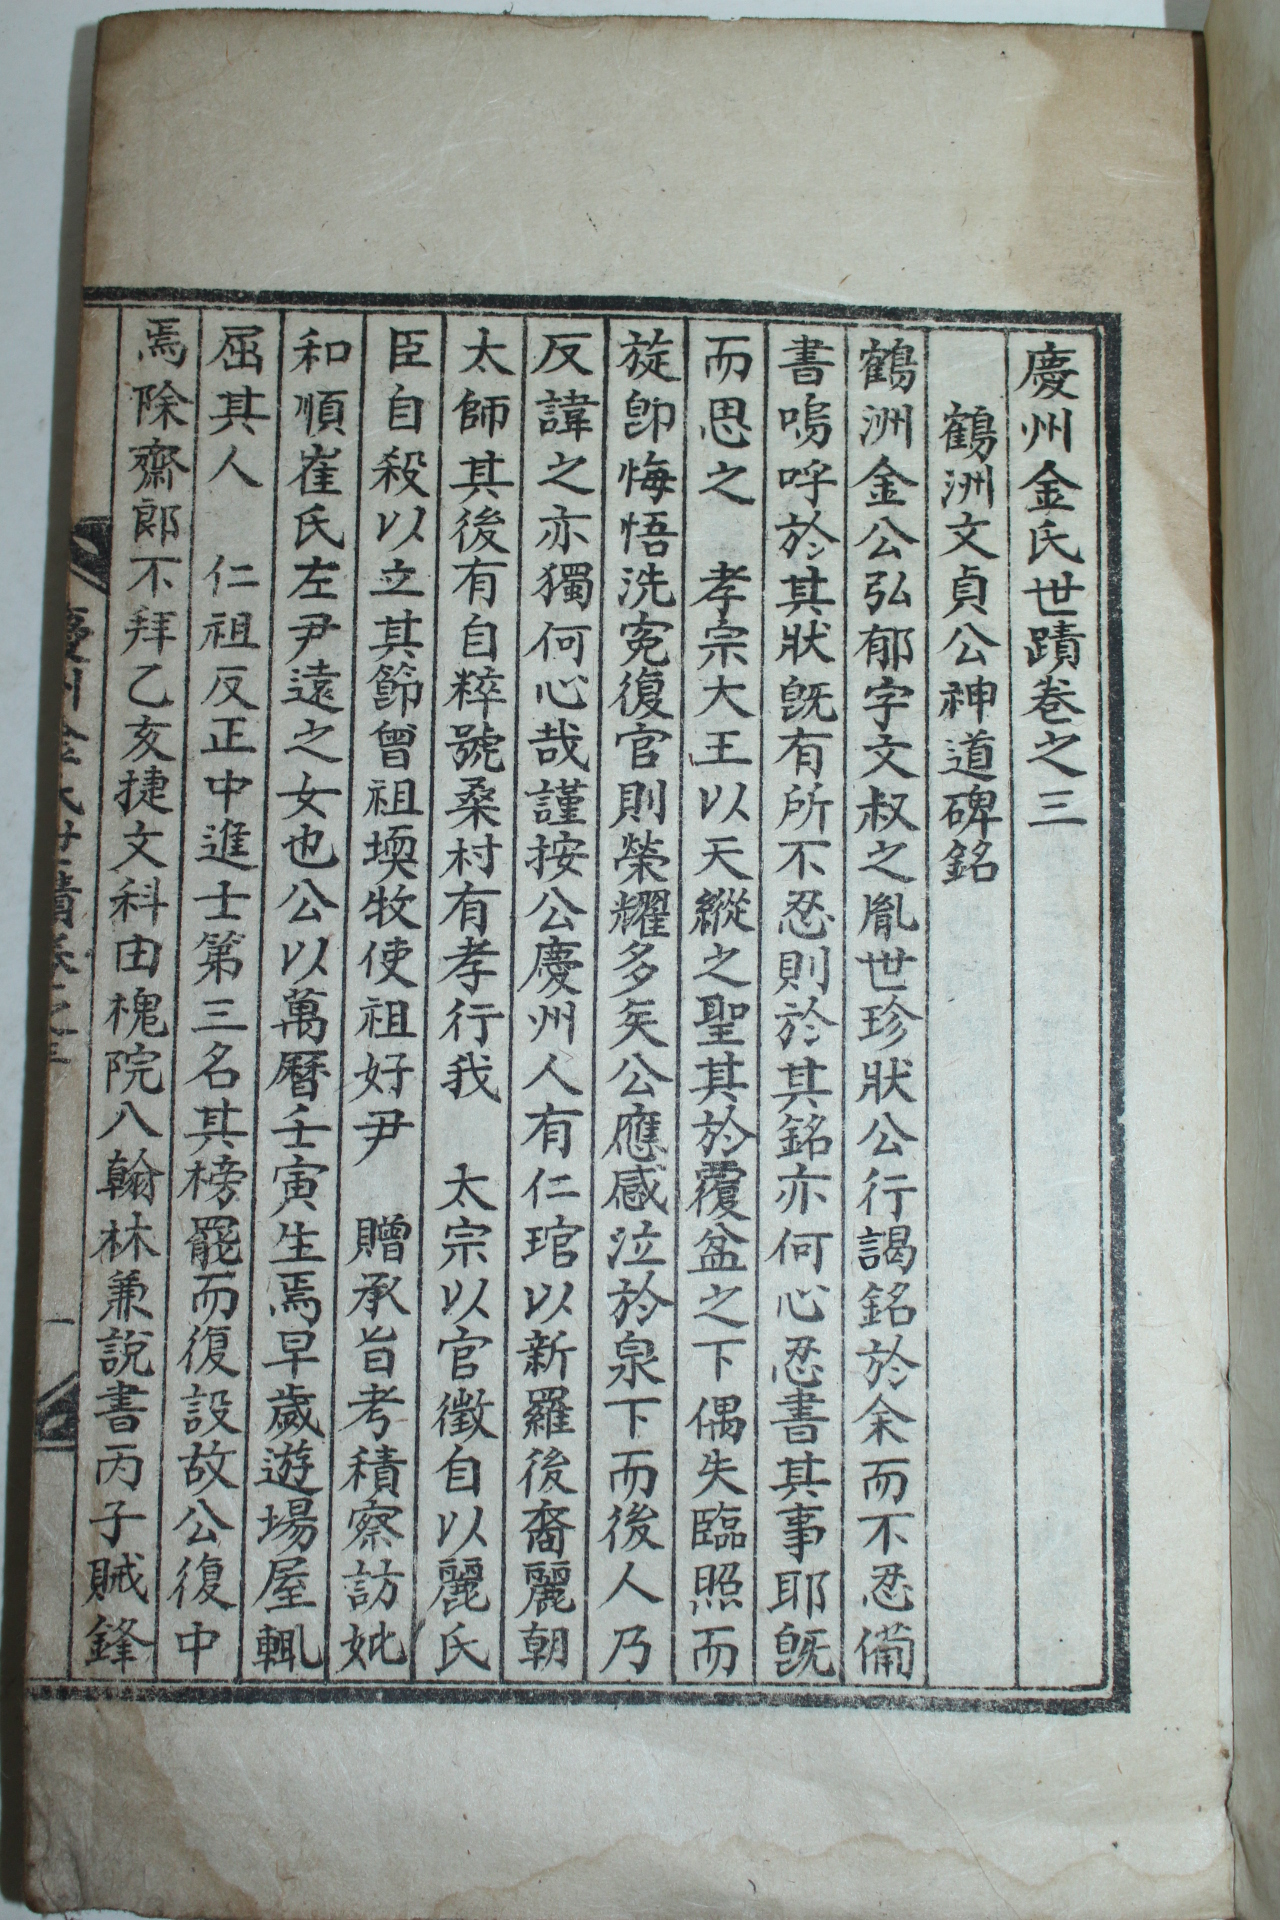 慶州金氏世蹟卷之三
鶴洲文貞公神道碑銘
鶴洲金公弘郁字文叔之胤世珍狀公行謁銘於余而不忍備
書嗚呼於其狀旣有所不忍則於其銘亦何心忍書其事耶旣
而思之 孝宗大王以天縱之聖其於覆盆之下偶失臨照而
旋卽悔悟洗冤復官則榮耀多矣公應感泣於泉下而後人乃
反諱之亦獨何心哉謹按公慶州人有仁琯以新羅後裔麗朝
太師其後有自粹號桑村有孝行我 太宗以官徵自以麗氏
臣自殺以立其節曾祖堧牧使祖好尹 贈承旨考積察訪妣
和順崔氏左尹遠之女也公以萬曆壬寅生焉早歲遊場屋輒
屈其人 仁祖反正中進士第三名其榜罷而復設故公復中
焉除齋郞不拜乙亥捷文科由槐院入翰林兼說書丙子賊鋒
慶州金氏世蹟卷之三
一